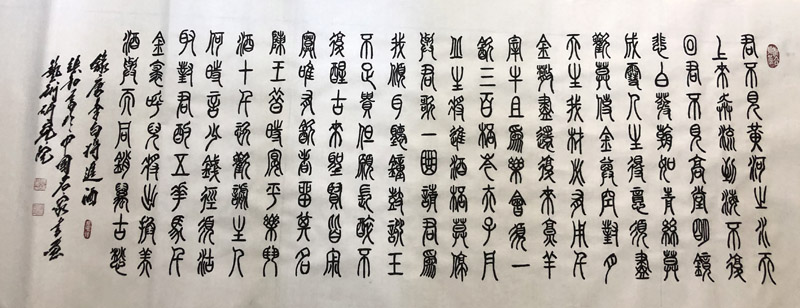 君不見黃河之水天
上來奔流到海不復
回君不見高堂明鏡
悲白髮朝如青絲莫
成雪人生得意須盡
歡莫使金尊空對月
天生我材必有用千
金散盡還復來烹羊
宰牛且為樂會須一
飲三百杯岑夫子丹
丘生將進酒杯莫停
與君歌一曲請君為
我傾耳聽鐘鼓饌玉
不足貴但願長醉不
復醒古來聖賢皆寂
寞唯有飲者留其名
陳王昔時宴平樂斗
酒十千恣歡謔主人
何時言少錢徑須沽
取對君酌五花馬千
金裘呼兒將出換美
酒與爾同銷萬古愁
錄唐李白將進酒
中國名家書畫
研究院